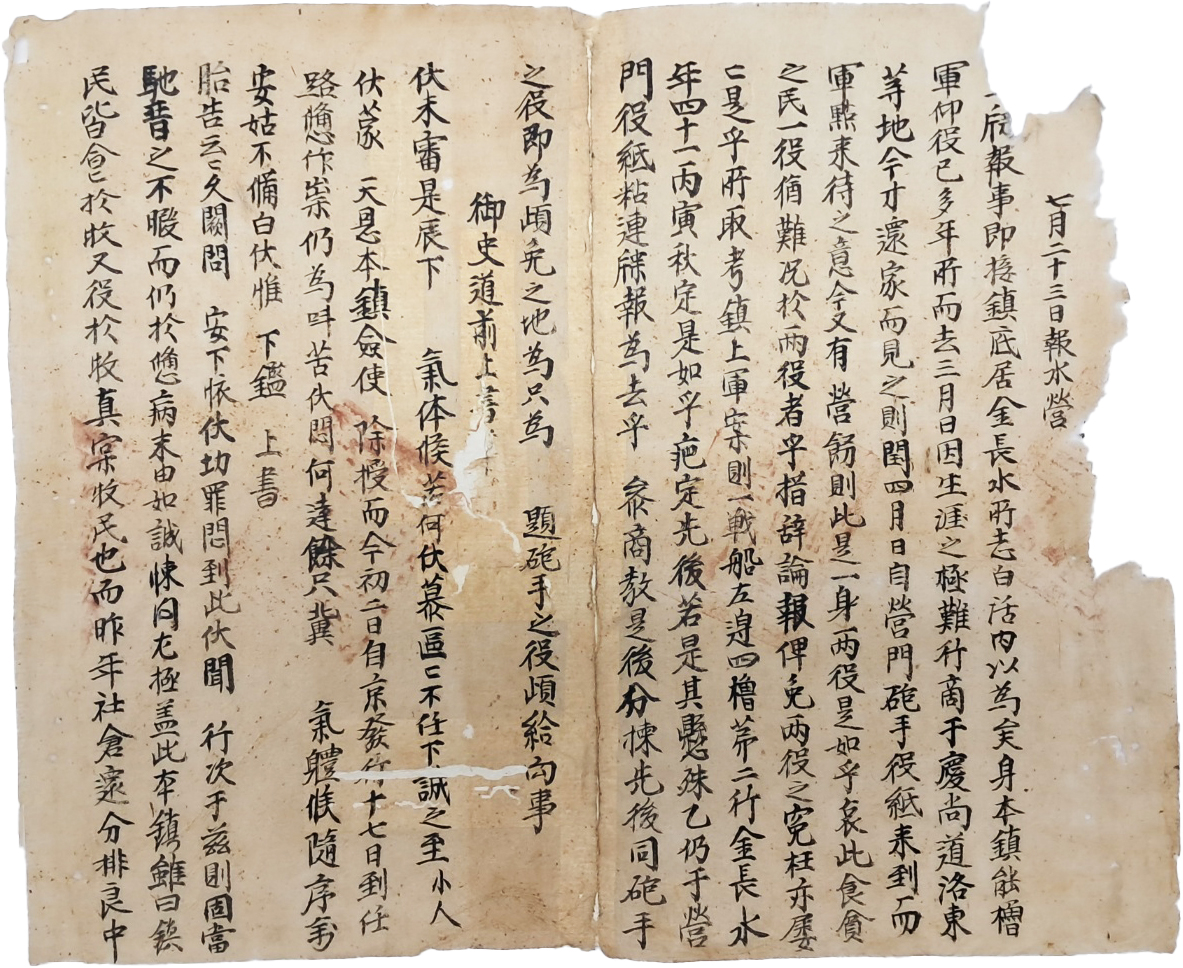 七月二十三日報水營
牒報事卽接鎮底居金長水所志白活內以爲矣身本鎮能櫓
軍仰役已多年所而去三月日因生涯之極難行商于慶尙道洛東
等地今才還家而見之則閏四月日自營門砲手役紙來到而
軍點來待之意令又有 營飭則此是一身兩役是如乎哀此食貧
之民一役猶難况於兩役者乎措辭論報俾免兩役之寃枉亦屢
亡是乎所取考鎮上軍案則一戰船左邊四櫓第二行金長水
年四十一丙寅秋定是如乎疤定先後若是其懸殊乙仍于營
門役紙粘連牒報爲去乎 叅商敎是後分揀先後同砲手
之役卽爲頉免之地爲只爲 題砲手之役頉給向事
御史道前上書
伏未審是辰下 氣体候若何伏慕區〻不任下誠之至小人
伏蒙 天恩本鎮僉使 除授而今初二日自京發行十七日到任
路憊作祟仍爲叫苦伏悶何達餘只冀 氣體候隨序萬
安姑不備白伏惟 下鑑 上書
胎告云〻久闕問 安下懷伏切罪悶到此伏聞 行次于玆則固當
馳晉之不暇而仍於憊病末由如誠悚悶尤極盖此本鎮雖曰鎮
民皆會〻於牧又役於牧眞案牧民也而昨年社倉還分排良中